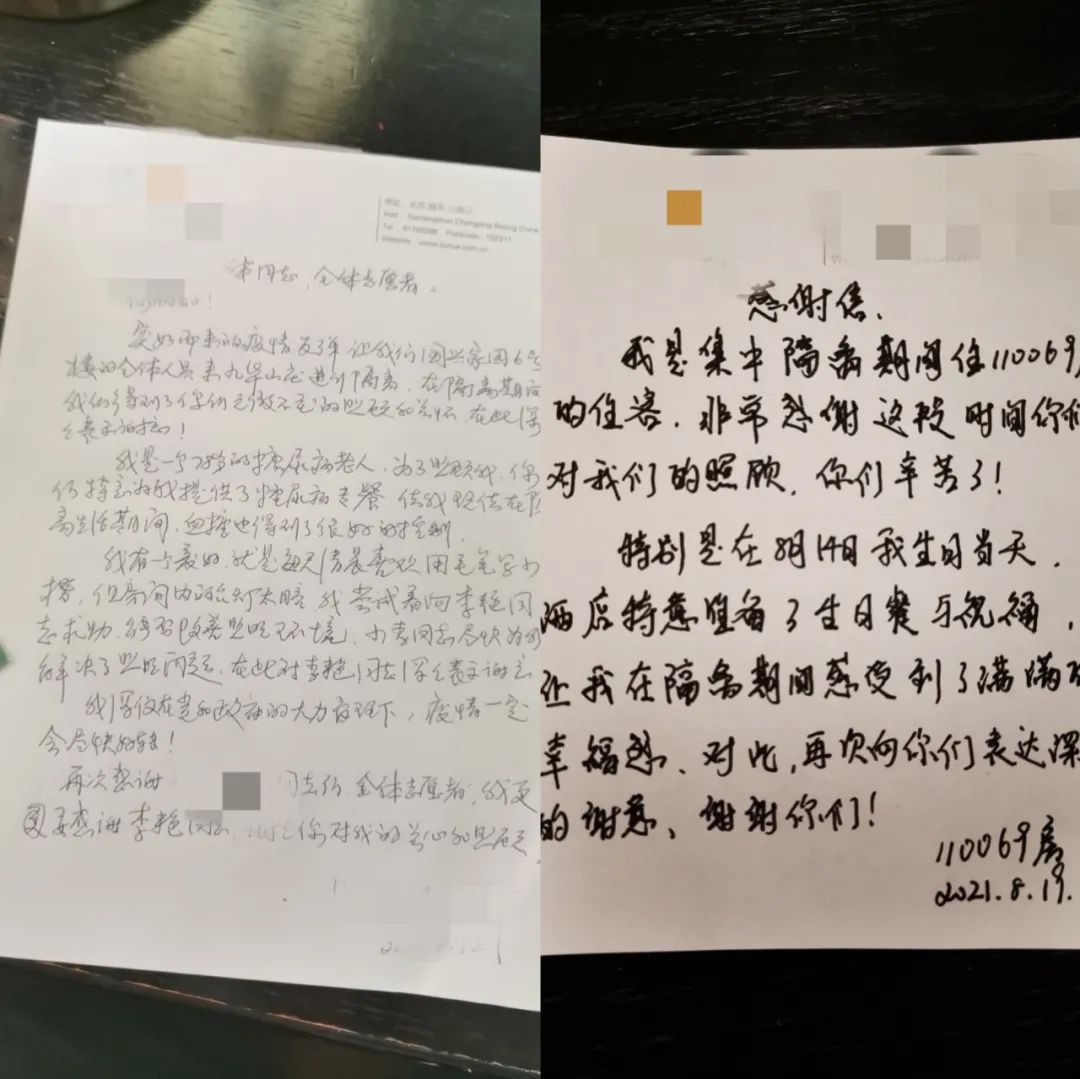 Add: Xiaotangshan Changping Beijing China
同志,全体志愿者。
突如而来的疫情反弹让我们国兴家园6号
楼的全体人员来九华山庄进行隔离,在隔离期间
我们得到了你们无微不至的照顾和关怀,在此深
表示谢意!
我是一个 岁的糖尿病老人,为了照顾我,你
们特意为我提供了糖尿病专餐,使我现住在隔
离生活期间,血糖也得到了很好的控制。
我有一个爱好,就是每天清晨喜欢用毛笔写小
楷,但房间内的台灯太暗,我尝试着向李艳同
志求助,能否改善照明环境,小李同志尽快为我
解决了照明问题,在此对李艳同志深表示谢意
我深信在党和政府的大力管理下,疫情一定
会尽快好转!
再次感谢 同志们,全体志愿者,我更
要感谢李艳同志, 你对我的关心和照顾。
感谢信。
我是集中隔离期间住110069房
的住客,非常感谢这段时间你们
对我们的照顾,你们辛苦了!
特别是在8月14日我生日当天,
酒店特意准备了生日餐与祝福,
让我在隔离期间感受到了满满的
幸福感、对此,再次向你们表达深
的谢意、谢谢你们!
110069房
2021.8.19.